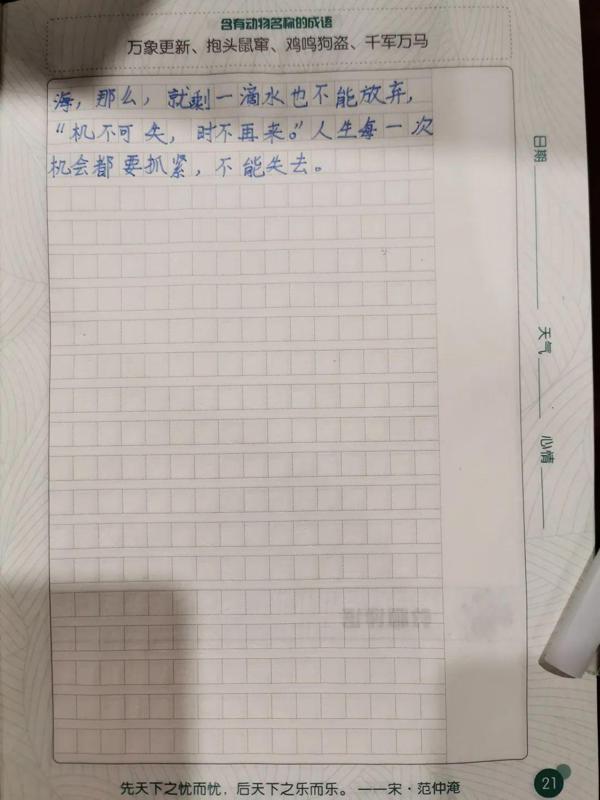 含有动物名称的成语
万象更新、抱头鼠窜、鸡鸣狗盗、千军万马
海，那么，就剩一滴水也不能放弃，
“机不可失，时不再来。”人生每一次
机会都要抓紧，不能失去。
日期
天气
心情
先天下之忧而忧，后天下之乐而乐。——宋·范仲淹
21